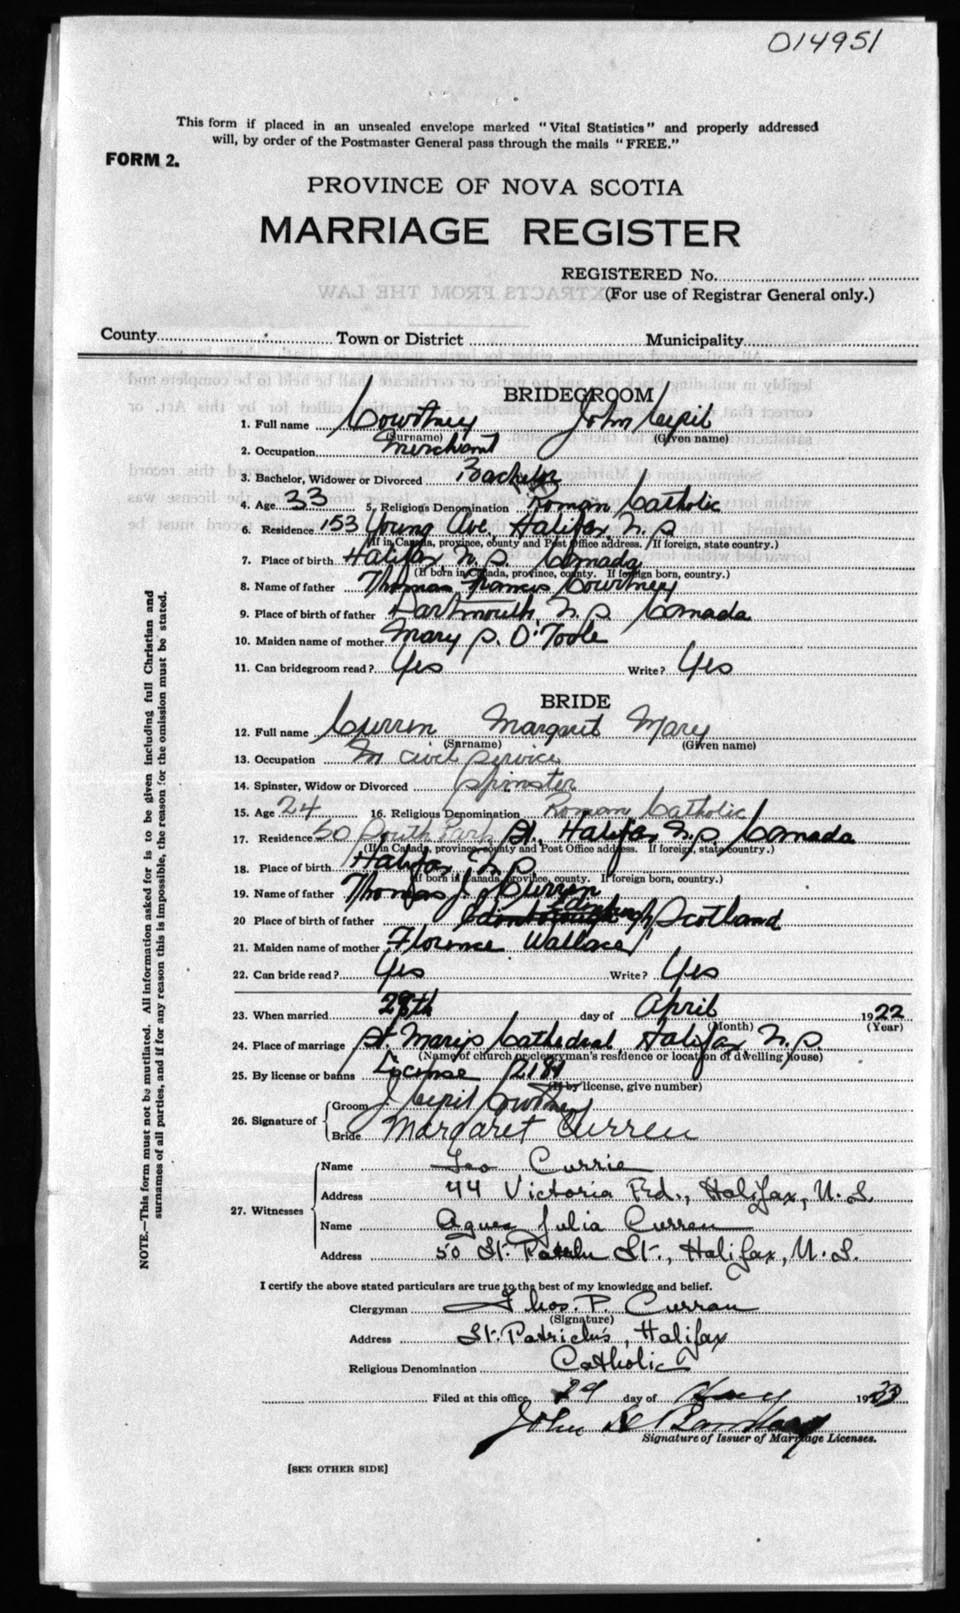 014951
This form if placed in an unsealed envelope marked "Vital Statistics" and properly addressed
will, by order of the Postmaster General pass through the mails "FREE."
FORM 2.
PROVINCE OF NOVA SCOTIA
MARRIAGE REGISTER
REGISTERED No.
(For use of Registrar General only.)
County Town or District Municipality
BRIDEGROOM
1. Full name Courtney John Cyril
(Surname) (Given name)
2. Occupation Merchant
3. Bachelor, Widower or Divorced Bachelor
4. Age 33 5. Religious Denomination Roman Catholic
6. Residence 153 Young Ave. Halifax, N.S.
(If in Canada, province, county and Post Office address. If foreign, state country.)
7. Place of birth Halifax N.S. Canada
(If born in Canada, province, county. If foreign born, country.)
8. Name of father Thomas Francis Courtney
9. Place of birth of father Dartmouth, N.S. Canada
10. Maiden name of mother Mary S. O'Toole
11. Can bridegroom read? Yes Write? Yes
BRIDE
12. Full name Curren Margaret Mary
(Surname) (Given name)
13. Occupation In civil service
14. Spinster, Widow or Divorced Spinster
15. Age 24 16. Religious Denomination Roman Catholic
17. Residence 50 South Park St. Halifax N.S. Canada
(If in Canada, province, county and Post Office address. If foreign, state country.)
18. Place of birth Halifax N.S.
(If born in Canada, province, county. If foreign born, country.)
19. Name of father Thomas J. Curren
20 Place of birth of father Edinburgh Scotland
21. Maiden name of mother Florence Wallace
22. Can bride read? Yes Write? Yes
23. When married 28th day of April 1922
(Month) (Year)
24. Place of marriage St. Mary's Cathedral, Halifax N.S.
(Name of church or clergyman's residence or location of dwelling house)
25. By license or banns License 2181
(If by license, give number)
26. Signature of Groom J Cyril Courtney
Bride Margaret Curren
27. Witnesses
Name Leo Currie
Address 44 Victoria Rd., Halifax, N.S.
Name Agnes Julia Curren
Address 50 St., Halifax, N.S.
I certify the above stated particulars are true to the best of my knowledge and belief.
Clergyman Thos. P. Curran
(Signature)
Address St. Patrick's, Halifax
Religious Denomination Catholic
Filed at this office 29 day of 19
John
Signature of Issuer of Marriage Licenses.
[SEE OTHER SIDE]
NOTE.—This form must not be mutilated. All information asked for is to be given including full Christian and
surnames of all parties, and if for any reason this is impossible, the reason for the omission must be stated.